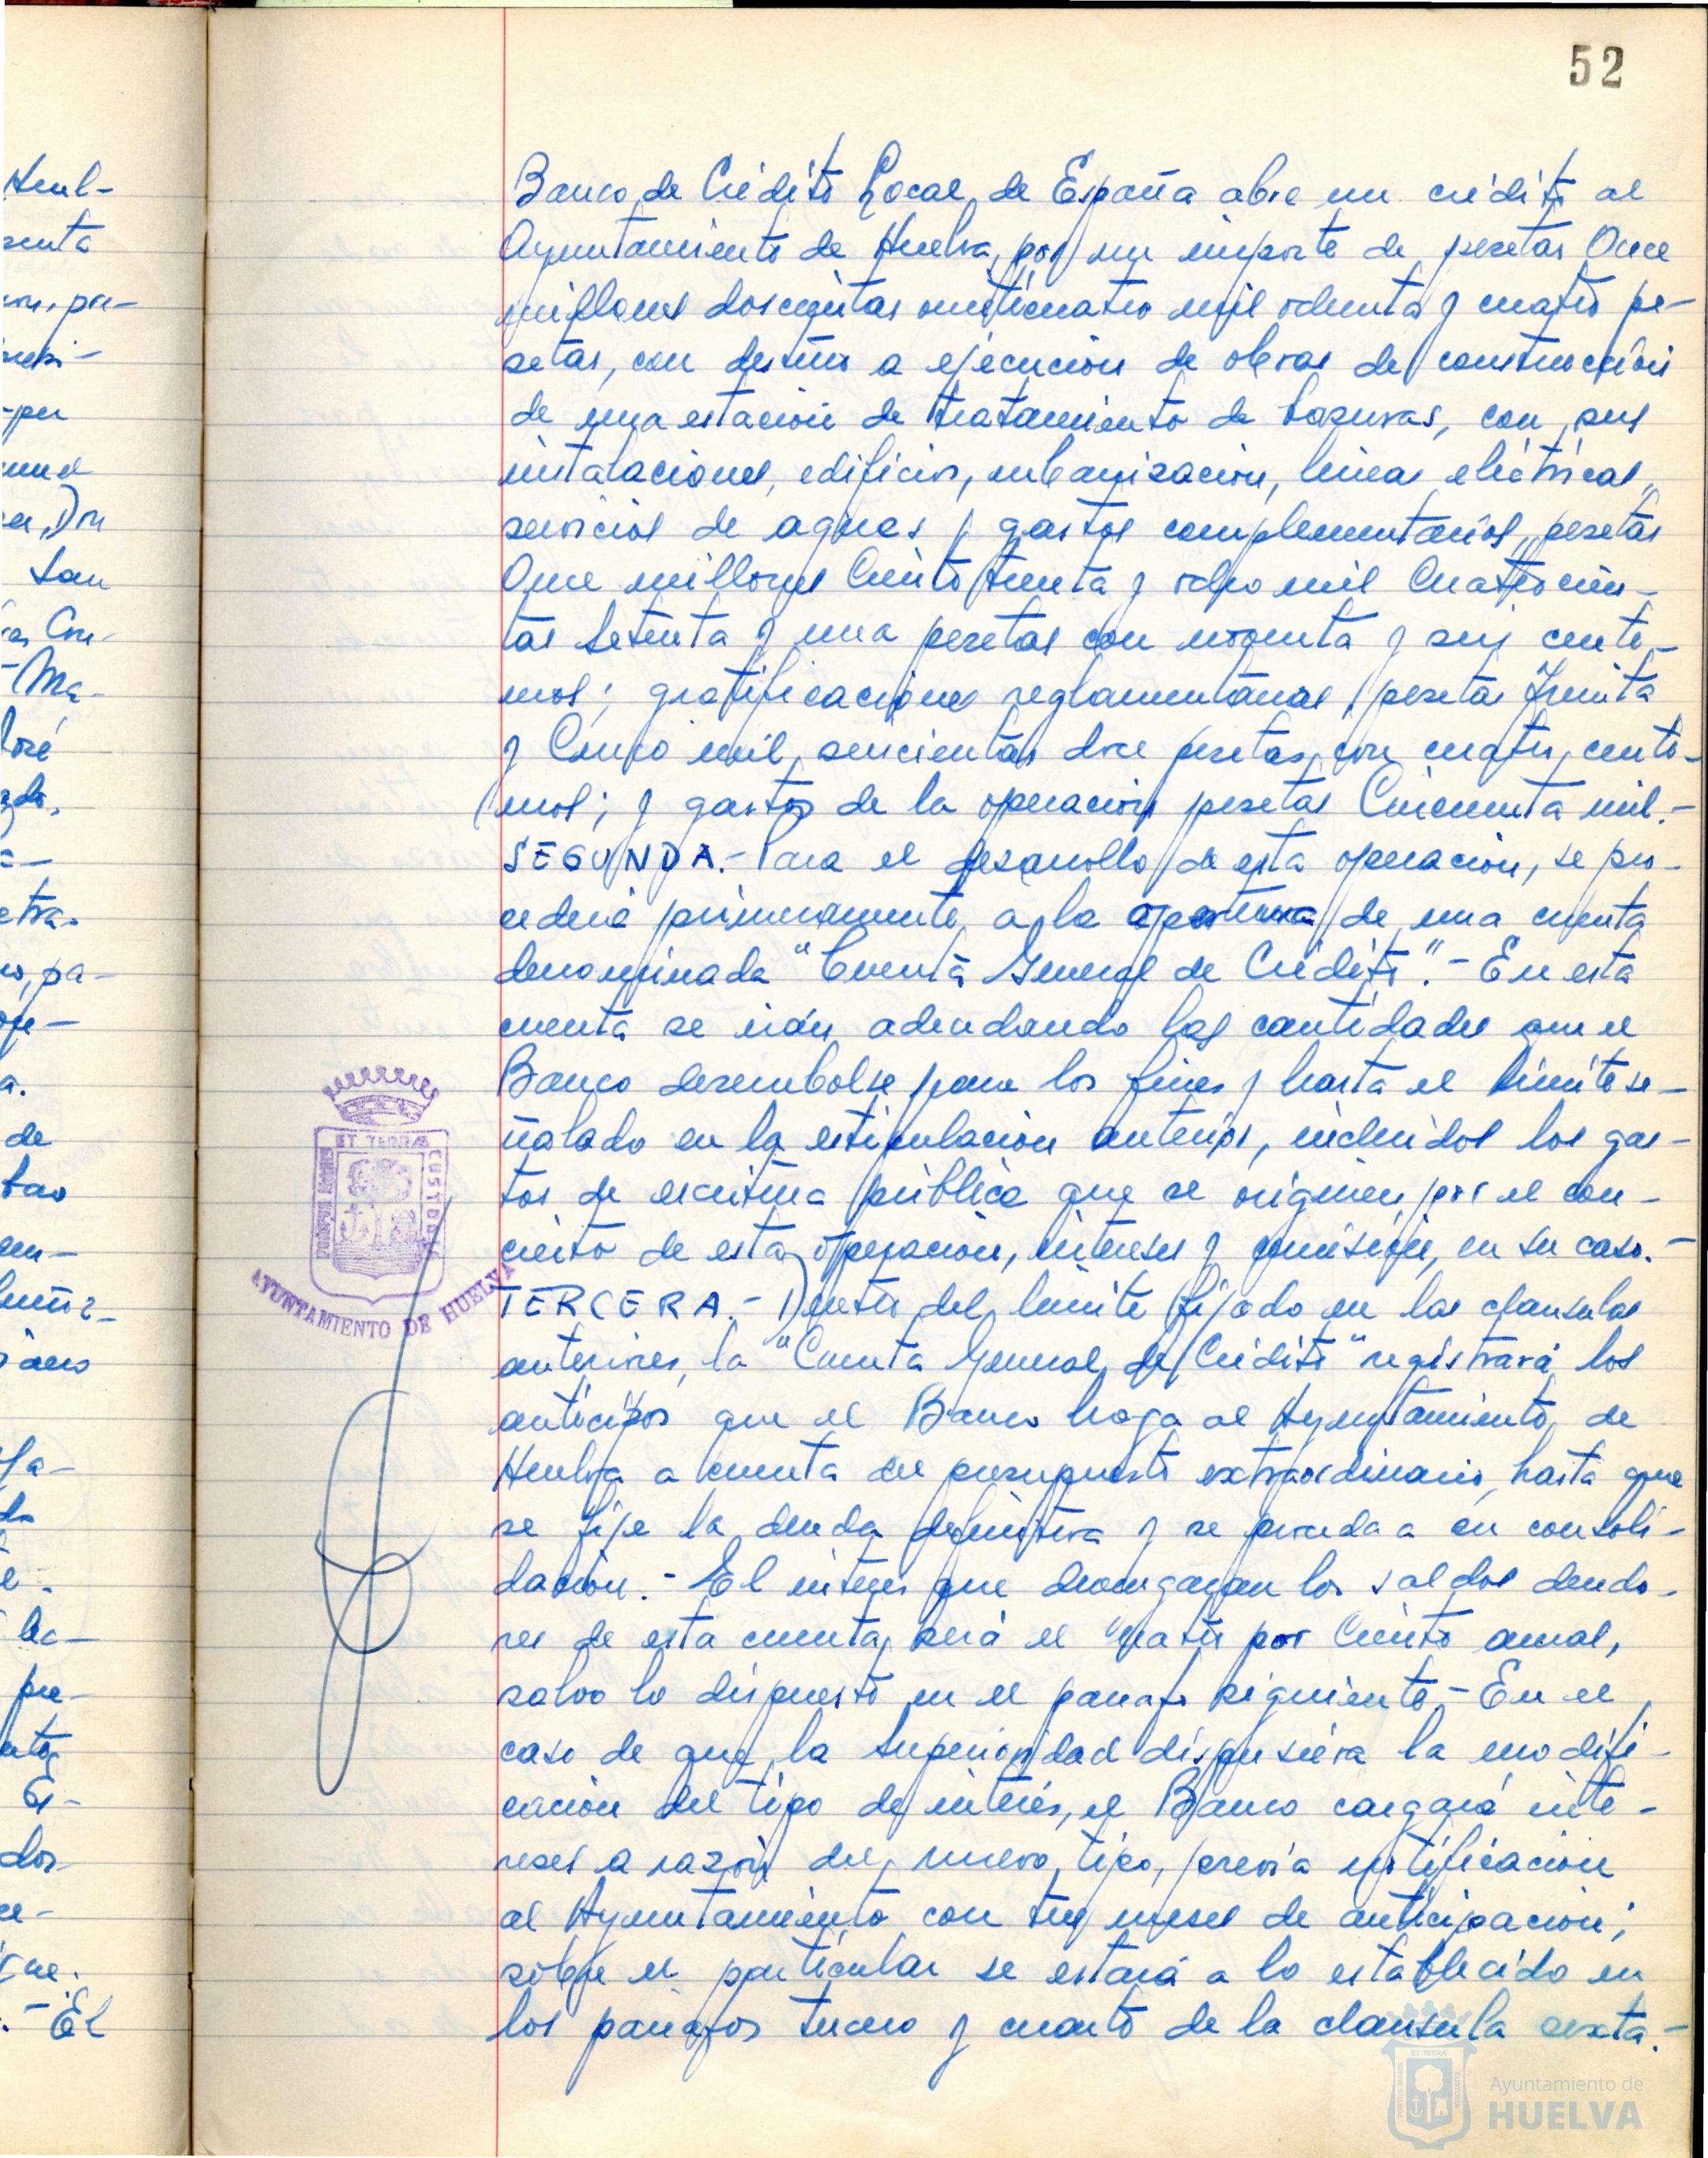 52
Banco de Crédito Local de España abre un crédito al
Ayuntamiento de Huelva, por un importe de pesetas Once
millones doscientas veinticuatro mil ochenta y cuatro pe-
setas, con destino a ejecución de obras de construcción
de una estación de tratamiento de basuras, con sus
instalaciones, edificios, urbanización, líneas eléctricas,
servicios de aguas y gastos complementarios, pesetas
Once millones Ciento treinta y ocho mil Cuatrocien-
tas Setenta y una pesetas con noventa y seis cénti-
mos; gratificaciones reglamentarias, pesetas Treinta
y Cinco mil, seiscientas doce pesetas, con cuatro, cénti-
mos; y gastos de la operación pesetas Cincuenta mil.-
SEGUNDA.- Para el desarrollo de esta operación, se pro-
cederá primeramente, a la apertura de una cuenta
denominada "Cuenta General de Crédito".- En esta
cuenta se irán adeudando las cantidades que el
Banco desembolse para los fines y hasta el límite se-
ñalado en la estipulación anterior, incluidos los gas-
tos de escritura pública que se originen por el con-
cierto de esta operación, intereses y comisión, en su caso.-
TERCERA.- Dentro del límite fijado en las clausulas
anteriores, la "Cuenta General de Crédito" registrará los
anticipos que el Banco haga al Ayuntamiento de
Huelva a cuenta del presupuesto extraordinario, hasta que
se fije la deuda definitiva y se proceda a su consoli-
dación.- El interés que devengarán los saldos deudo-
res de esta cuenta, será el cuatro por Ciento anual,
salvo lo dispuesto en el parrafo siguiente.- En el
caso de que la Superioridad dispusiera la modifi-
cación del tipo de interés, el Banco cargará inte-
reses a razón del nuevo tipo, previa notificación
al Ayuntamiento con tres meses de anticipación;
sobre el particular se estará a lo establecido en
los párrafos tercero y cuarto de la clausula sexta.-
Huel-
pa-
per
Don
San
Con-
Ma-
José
pa-
a.
de
em-
la-
pre-
dos
.- El
ET TERRÆ CUSTODIA
AYUNTAMIENTO DE HUELVA
Ayuntamiento de
HUELVA